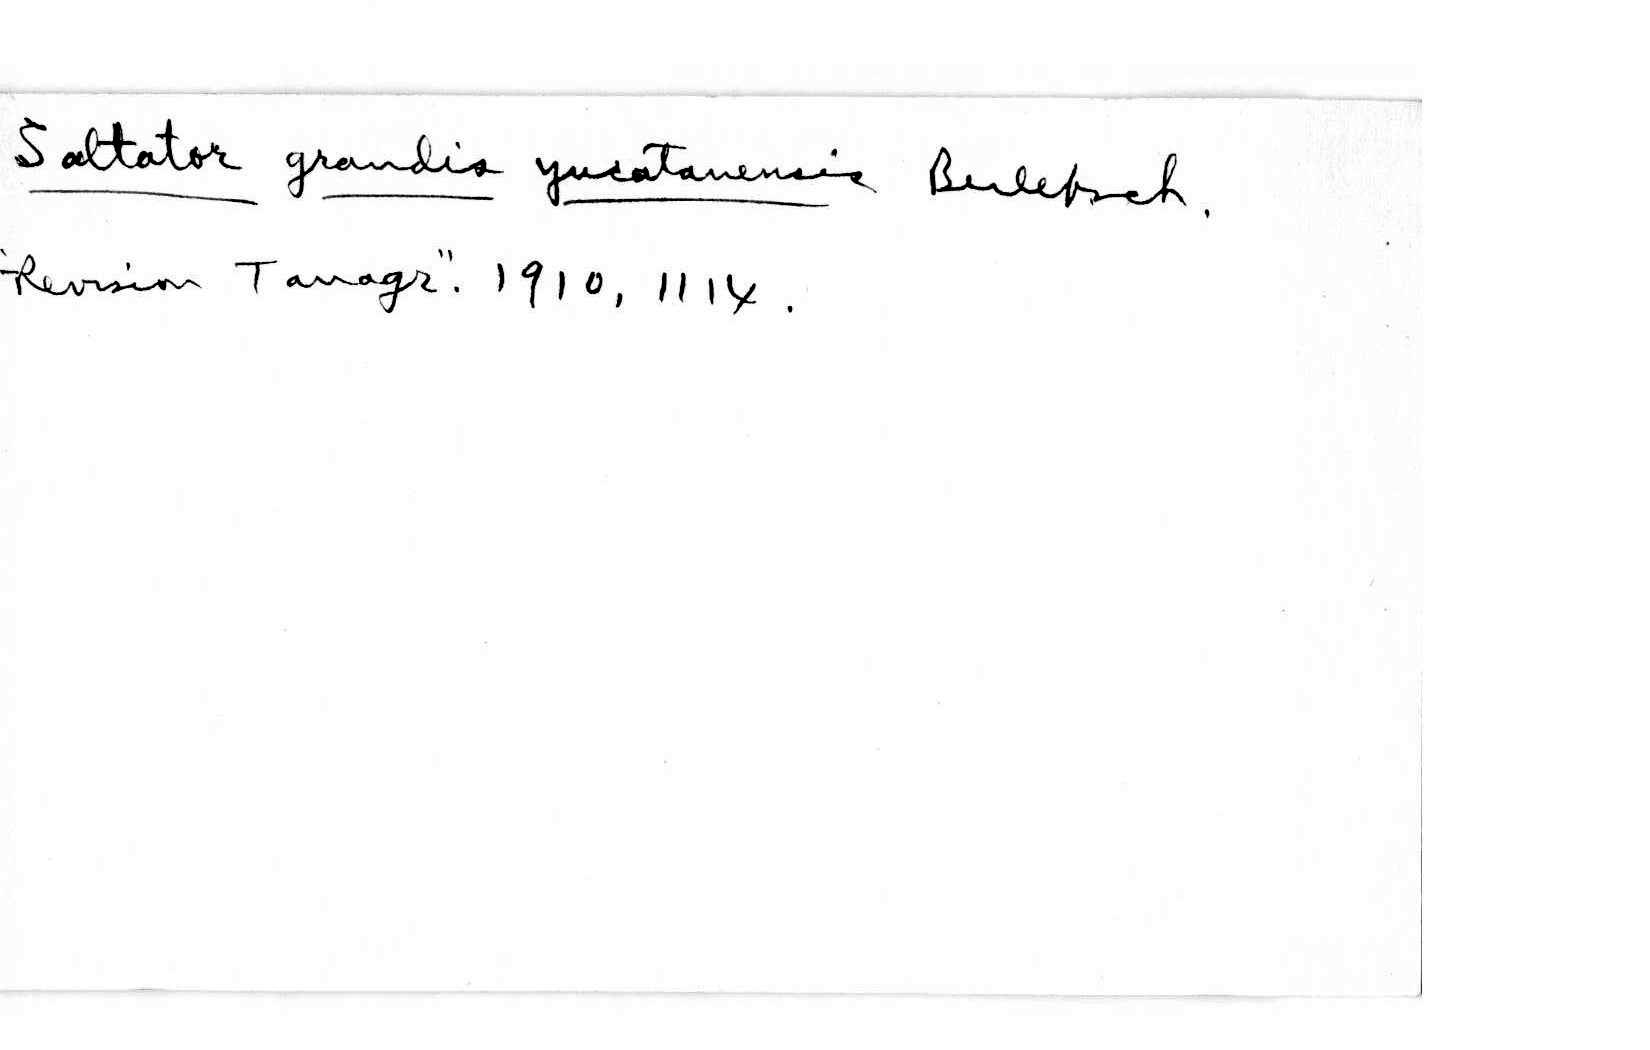 Saltator grandis yucatanensis Berlepsch.
"Revision Tanagr". 1910, 1114.